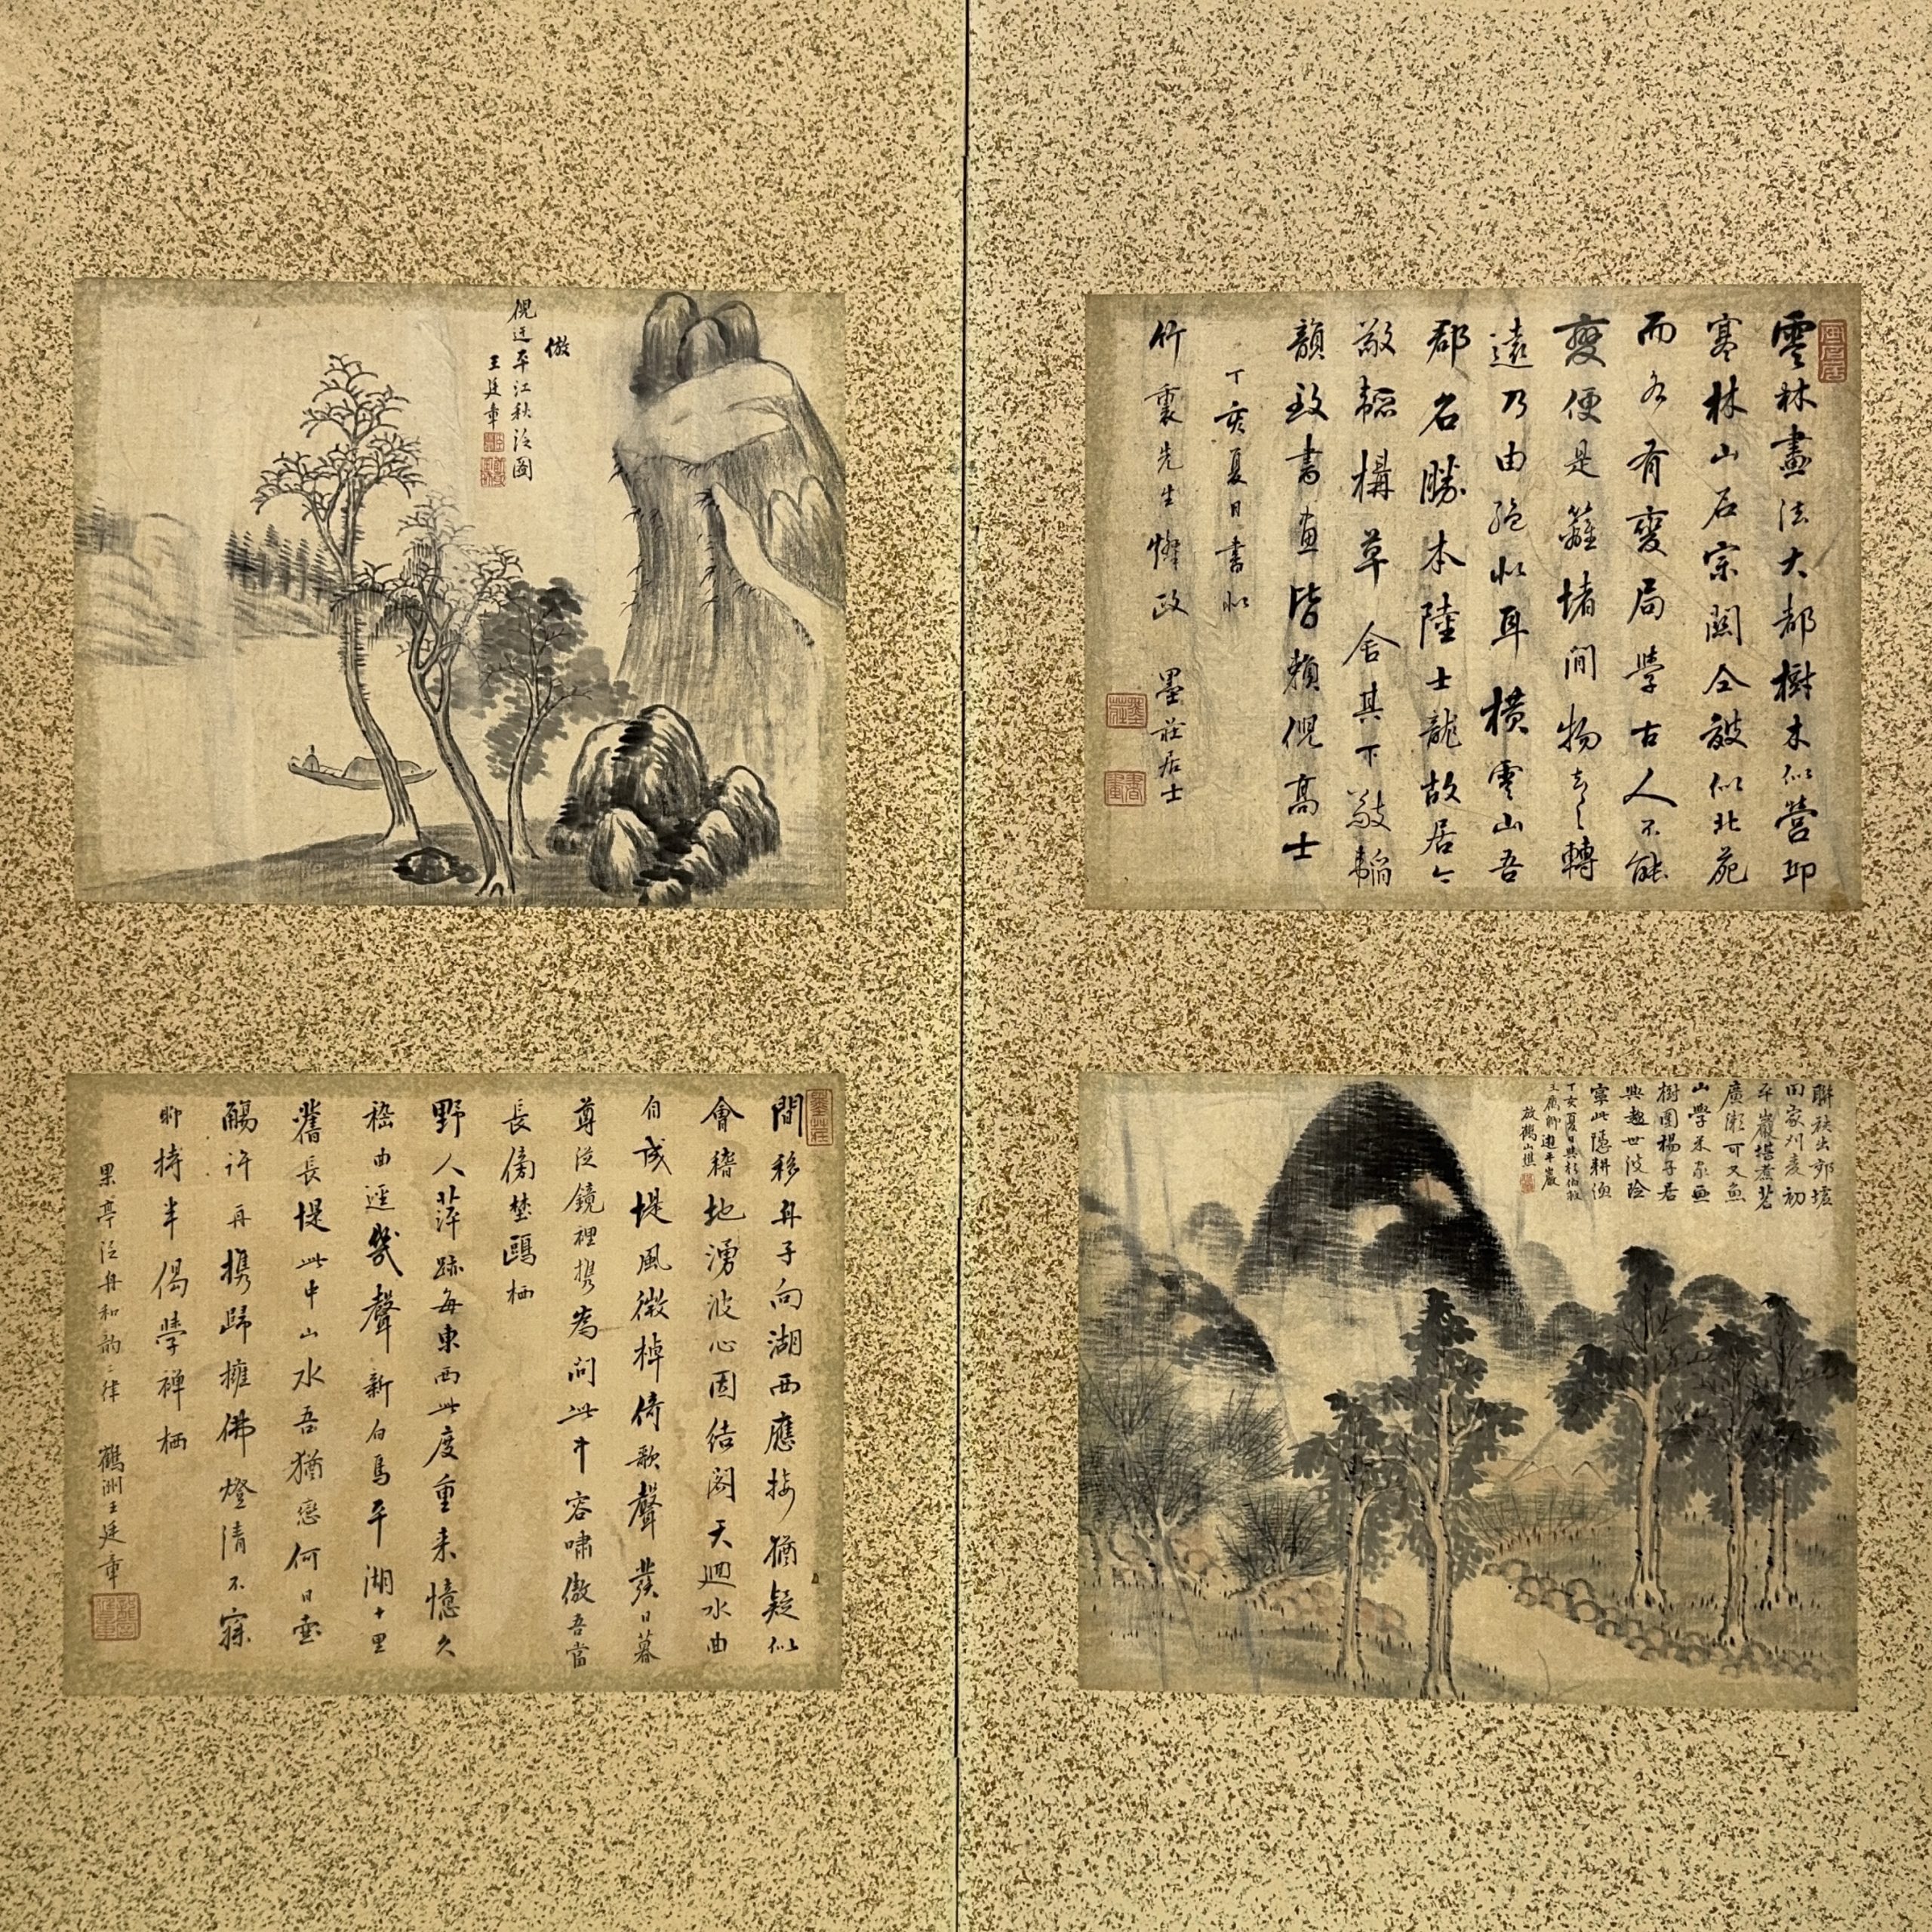 雲林畫法大都樹木似營邱
寒林山石宗關仝皴似北苑
而各有變局學古人不能
變便是籬堵間物去之轉
遠乃由絕似耳橫雲山吾
郡名勝本陸士龍故居今
敬韜構草舍其下敬韜
韻致書畫皆類倪高士
丁亥夏日書似
竹裏先生 政 墨莊居士
倣
倪迂平江秋泛圖
王廷章
聯袂出郊墟
田家刈麥初
平巖堪煮茗
廣瀨可叉魚
山學米家畫
樹圍楊子居
興趣世波險
寧此隱耕漁
丁亥夏日與杉伯
遊平巖
放鶴山樵
間移舟子向湖西應接猶疑似
會稽地湧波心固結閣天迴水曲
自成堤風微棹倚歌聲發日暮
尊泛鏡裡携為問此中容嘯傲吾當
長傍埜鷗栖
野人萍跡每東西此度重来憶久
嵇由逕幾聲新白馬平湖十里
舊長堤此中山水吾猶戀何日壺
觴许再携歸擁佛燈清不寐
聊持半偈學禅栖
果亭泛舟和韵二律 鶴洲王廷章